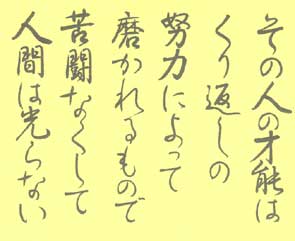 その人の才能は
くり返しの
努力によって
磨かれるもので
苦闘なくして
人間は光らない